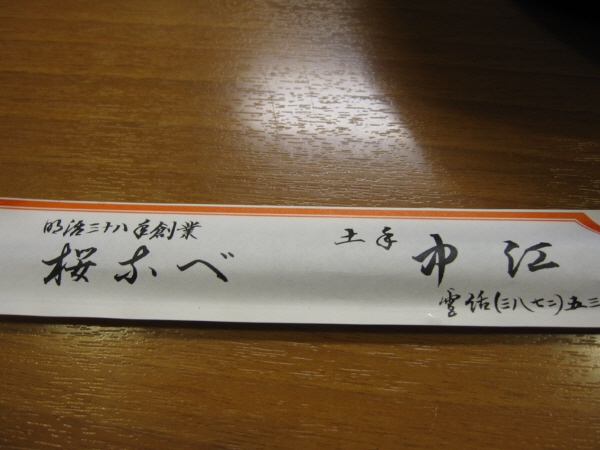 明治三十八年創業
桜なべ
土手
中江
電話(三八七二)五三